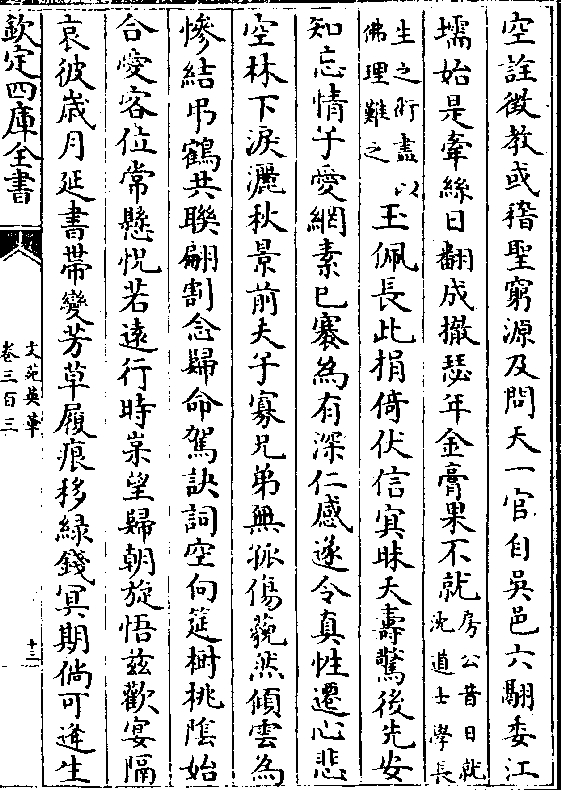 空詮徵教或稽聖窮源及問天一官自吳邑六翮委江
壖始是牽絲日翻成撤瑟年金膏果不就房公昔日就沈道士學長
生之術盡佛理難之以玉佩長此捐倚伏信冥昧夭壽驚後先安
知忘情子愛網素已褰為有深仁感遂令真性遷心悲
空林下淚灑秋景前夫子寡兄弟無孤傷藐然傾雲為
慘結弔鶴共聯翩割念歸命駕訣詞空向筵樹桃隂始
合愛客位常懸怳若遠行時祟望歸朝旋悟兹歡宴隔
哀彼歲月延書帶變芳草履痕移緑錢冥期倘可逢生
欽定四庫全書
文苑英華
卷三百三
十三